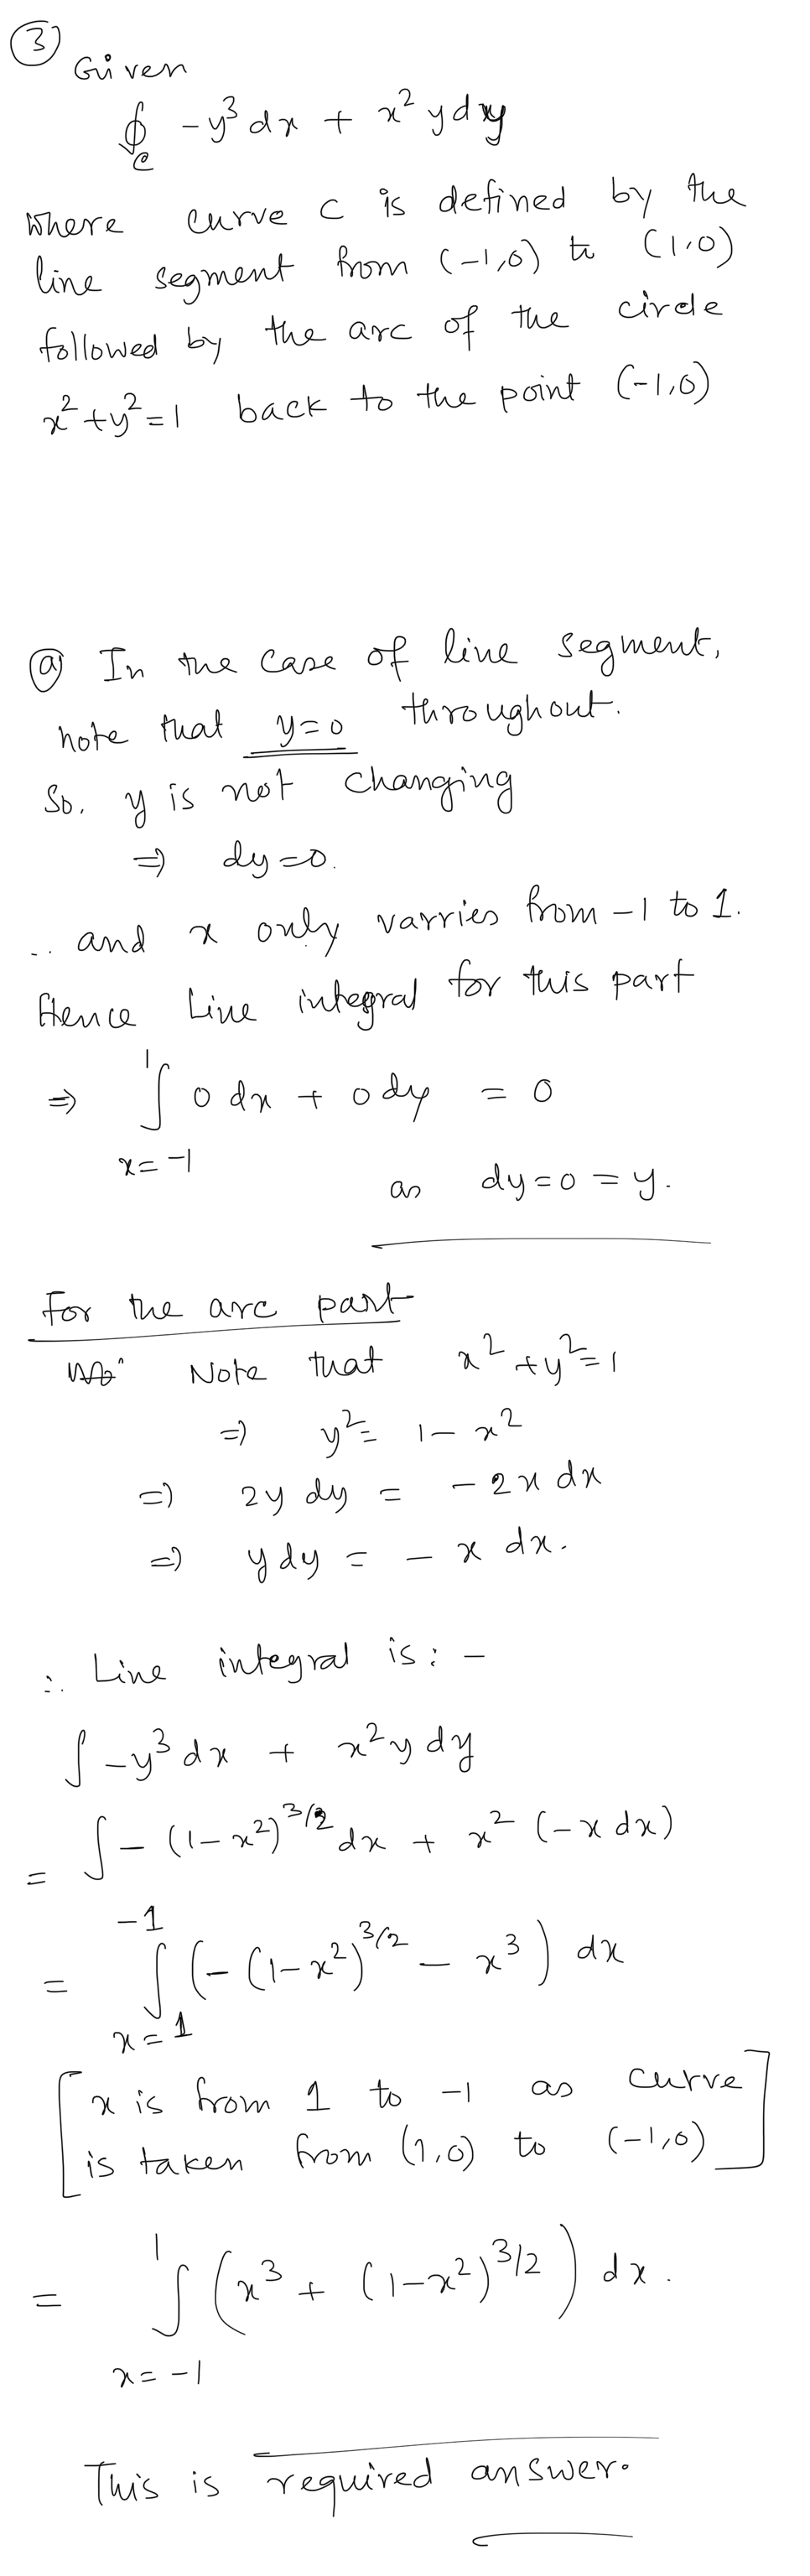 ③ Given
∮_C -y³ dx + x² y dy
where curve C is defined by the
line segment from (-1,0) to (1,0)
followed by the arc of the circle
x²+y²=1 back to the point (-1,0)
ⓐ In the case of line segment,
note that y=0 throughout.
So, y is not changing
⇒ dy=0.
.. and x only varries from -1 to 1.
Hence Line integral for this part
⇒ ∫_{x=-1}^{1} 0 dx + 0 dy = 0
as dy=0=y.
For the arc part
Note that x²+y²=1
⇒ y²= 1-x²
⇒ 2y dy = -2x dx
⇒ y dy = - x dx.
∴ Line integral is: -
∫ -y³ dx + x² y dy
= ∫ - (1-x²)^{3/2} dx + x² (-x dx)
= ∫_{x=1}^{-1} (-(1-x²)^{3/2} - x³) dx
[x is from 1 to -1 as curve
is taken from (1,0) to (-1,0)]
= ∫_{x=-1}^{1} (x³ + (1-x²)^{3/2}) dx.
This is required answer.